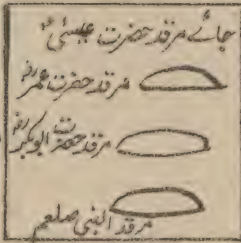 جائے مرقد حضرت عیسیٰ ؑ
مرقد حضرت عمر رضؓ
مرقد حضرت ابوبکر رضؓ
مرقد النبی صلعم